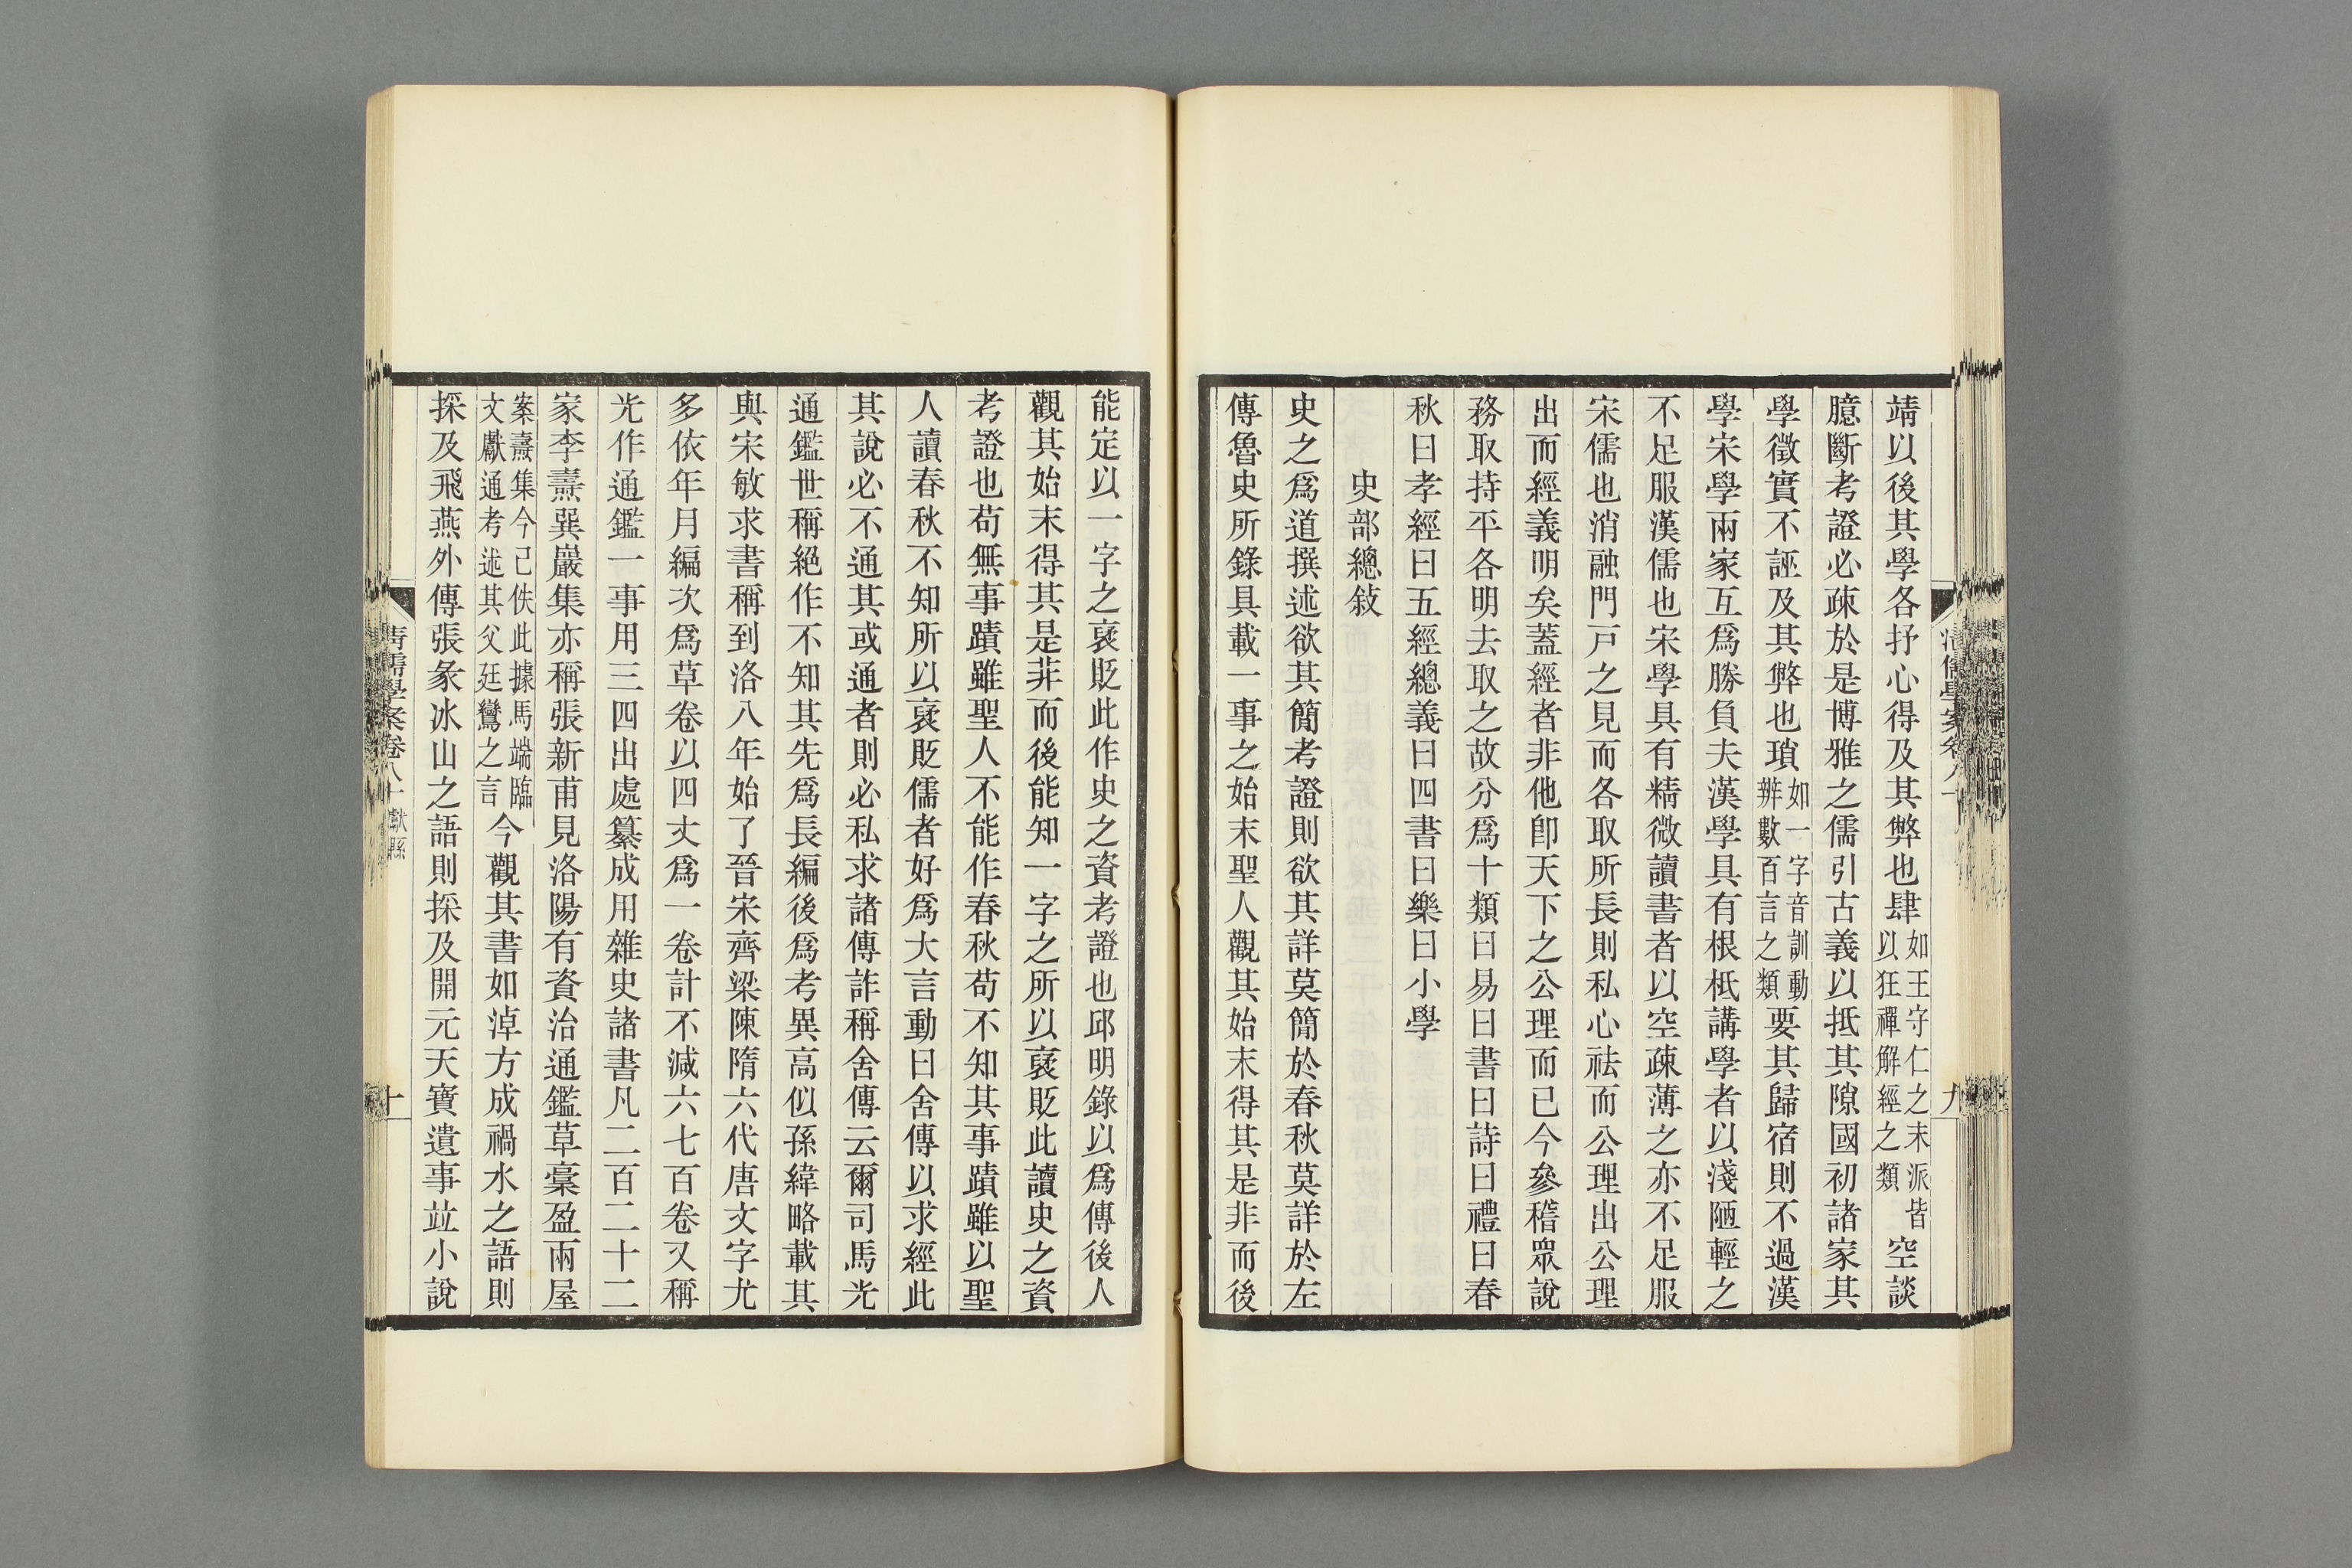 靖以後其學各抒心得及其弊也肆如王守仁之末派皆以狂禪解經之類空談
臆斷考證必疎於是博雅之儒引古義以抵其隙國初諸家其
學徵實不誣及其弊也瑣如一字音訓動辨數百言之類要其歸宿則不過漢
學宋學兩家互爲勝負夫漢學具有根柢講學者以淺陋輕之
不足服漢儒也宋學具有精微讀書者以空疎薄之亦不足服
宋儒也消融門戶之見而各取所長則私心祛而公理出公理
出而經義明矣蓋經者非他卽天下之公理而已今參稽眾說
務取持平各明去取之故分爲十類曰易曰書曰詩曰禮曰春
秋曰孝經曰五經總義曰四書曰樂曰小學
史部總敍
史之爲道撰述欲其簡考證則欲其詳莫簡於春秋莫詳於左
傳魯史所錄具載一事之始末聖人觀其始末得其是非而後
能定以一字之襃貶此作史之資考證也邱明錄以爲傳後人
觀其始末得其是非而後能知一字之所以襃貶此讀史之資
考證也苟無事蹟雖聖人不能作春秋苟不知其事蹟雖以聖
人讀春秋不知所以襃貶儒者好爲大言動曰舍傳以求經此
其說必不通其或通者則必私求諸傳詐稱舍傳云爾司馬光
通鑑世稱絕作不知其先爲長編後爲考異高似孫緯略載其
與宋敏求書稱到洛八年始了晉宋齊梁陳隋六代唐文字尤
多依年月編次爲草卷以四丈爲一卷計不減六七百卷又稱
光作通鑑一事用三四出處纂成用雜史諸書凡二百二十二
家李燾巽巖集亦稱張新甫見洛陽有資治通鑑草稾盈兩屋
案燾集今已佚此據馬端臨文獻通考述其父廷鸞之言今觀其書如淖方成禍水之語則
採及飛燕外傳張彖冰山之語則採及開元天寶遺事竝小說
清儒學案卷八十 獻縣 十